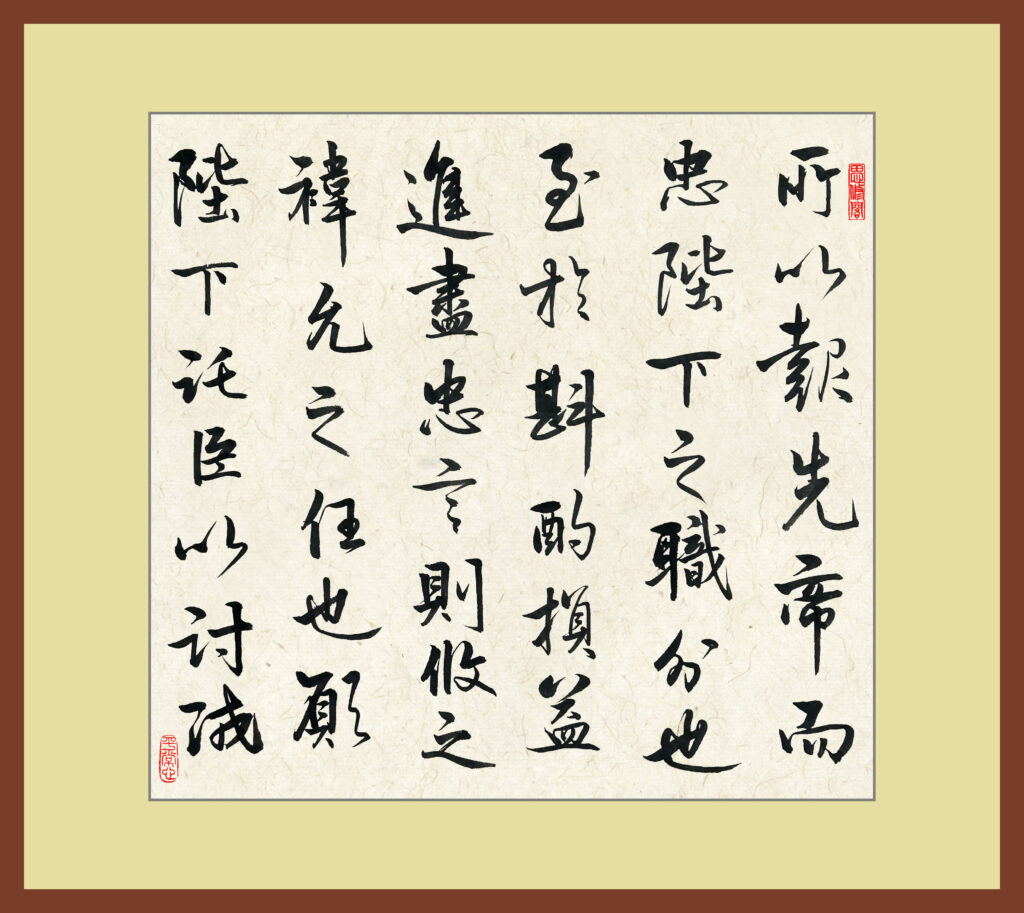 思修閣
所以報先帝而
忠陛下之職分也
至於斟酌損益
進盡忠言則攸之
禕允之任也願
陛下託臣以討賊
平常心